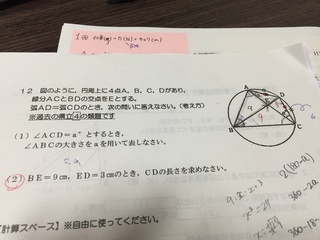 12 図のように、円周上に4点A、B、C、Dがあり、
線分ACとBDの交点をEとする。
弧AD=弧CDのとき、次の問いに答えなさい。(考え方)
※過去の県立④の類題です
(1) ∠ACD=a°とするとき、
∠ABCの大きさをaを用いて表しなさい。
2a
(2) BE=9㎝、ED=3㎝のとき、CDの長さを求めなさい。
A
D
E
B
C
9
6
9:x=x:3
x²=27
360-2a
【計算スペース】※自由に使ってください。